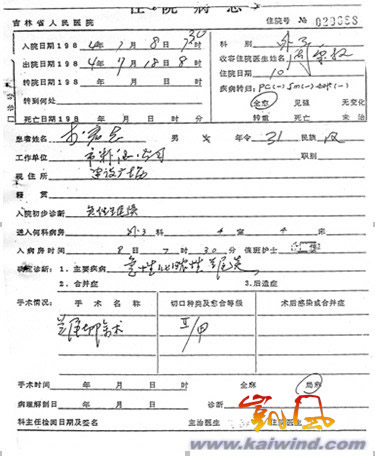 住 院 病 志
吉林省人民医院 住院号 № 020558
入院日期198 4年 7月 8日 7时30 科别 外三
出院日期198 4年 7月 18日 8时 收容住院医生姓名
转院日期198 年 月 日 时 住院日期 10
转到何处 疾病转归: PC(-) Sm(-)
全愈 见强 无变化
死亡日期198 年 月 日 时 分 转重 死亡 未治
门诊号
患者姓名 男 年令 31 民族 汉
工作单位 市 公司 职别
现住所 建设广场
籍贯
入院初步诊断 急性阑尾炎
进入何科病房 外三科 4室 4床
入病房时间 8日 7时 30分 值班护士
病院诊断: 1.主要疾病 急性化脓性阑尾炎
2.合并症 3.后遗症
手术情况: 手术名称 切口种类及愈合等级 术后感染或合并症
兰尾切除术 Ⅱ/甲
手术时间 年 月 日 时 全麻 局麻
病理解剖日 年 月 日 时 诊断
科主任检阅日期及签名 主治医生 住院医生
凯风
www.kaiwind.com